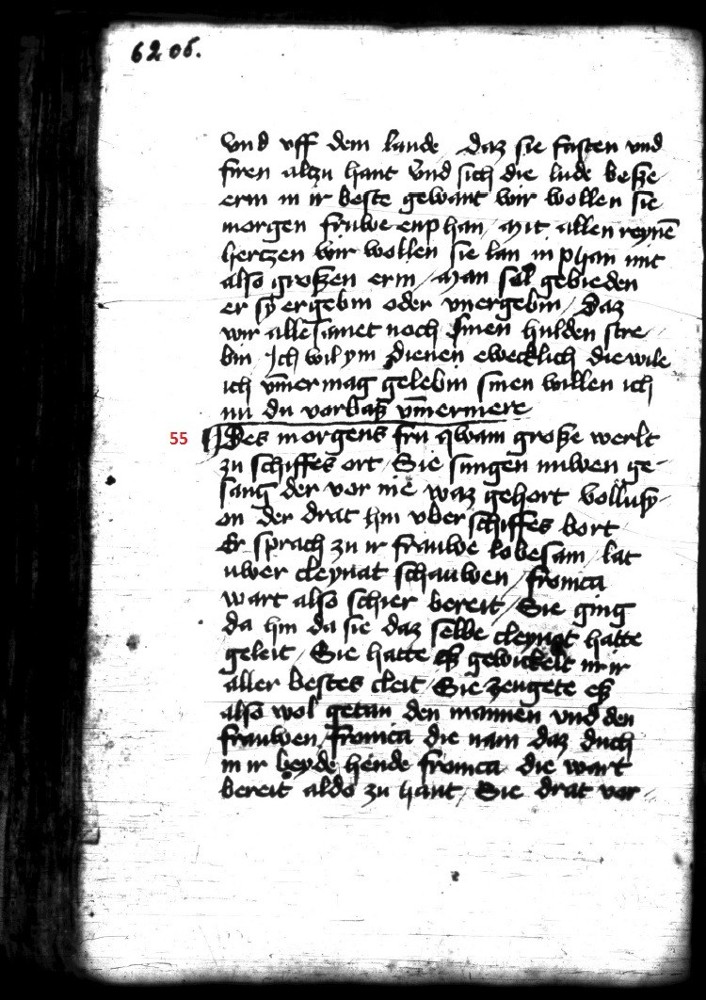 6206.
vnd vff dem lande daz sie fasten vnd
firen alzu hant Vnd sich die lude besße
ern in ir beste gewant wir wollen sie
morgen frůwe enphan / Mit allen reynē
hertzen wir wollen sie lan inphan mit
also großen ern / Man sal gebieden
er sÿ ergebin oder vnergebin / Daz
wir alle samet noch sinen hulden stre
bin Ich wil ym dienen ewecklich die wile
ich vm̄er mag gelebin sinen willen ich
nu du vorbaß vm̄ermere
55 Des morgens fru qwam große werlt
zu schiffes ort / Sie sungen nuwen ge-
sang der vor nie waz gehort vollusp
on der drat hin vber schiffes bort
Er sprach zu ir frauwe lobesam / lat
uwer cleynat schauwen / fronica
wart also schier bereit / Sie ging
da hin da sie daz selbe cleynot hatte
geleit / Sie hatte eß gewickelt in ir
aller bestes cleit / Sie zeugete eß
also wol getan den mannen vnd den
frauwen / fronica die nam daz duch
in ir beyde hende fronica die wart
bereit aldo zu hant / Sie drat vor